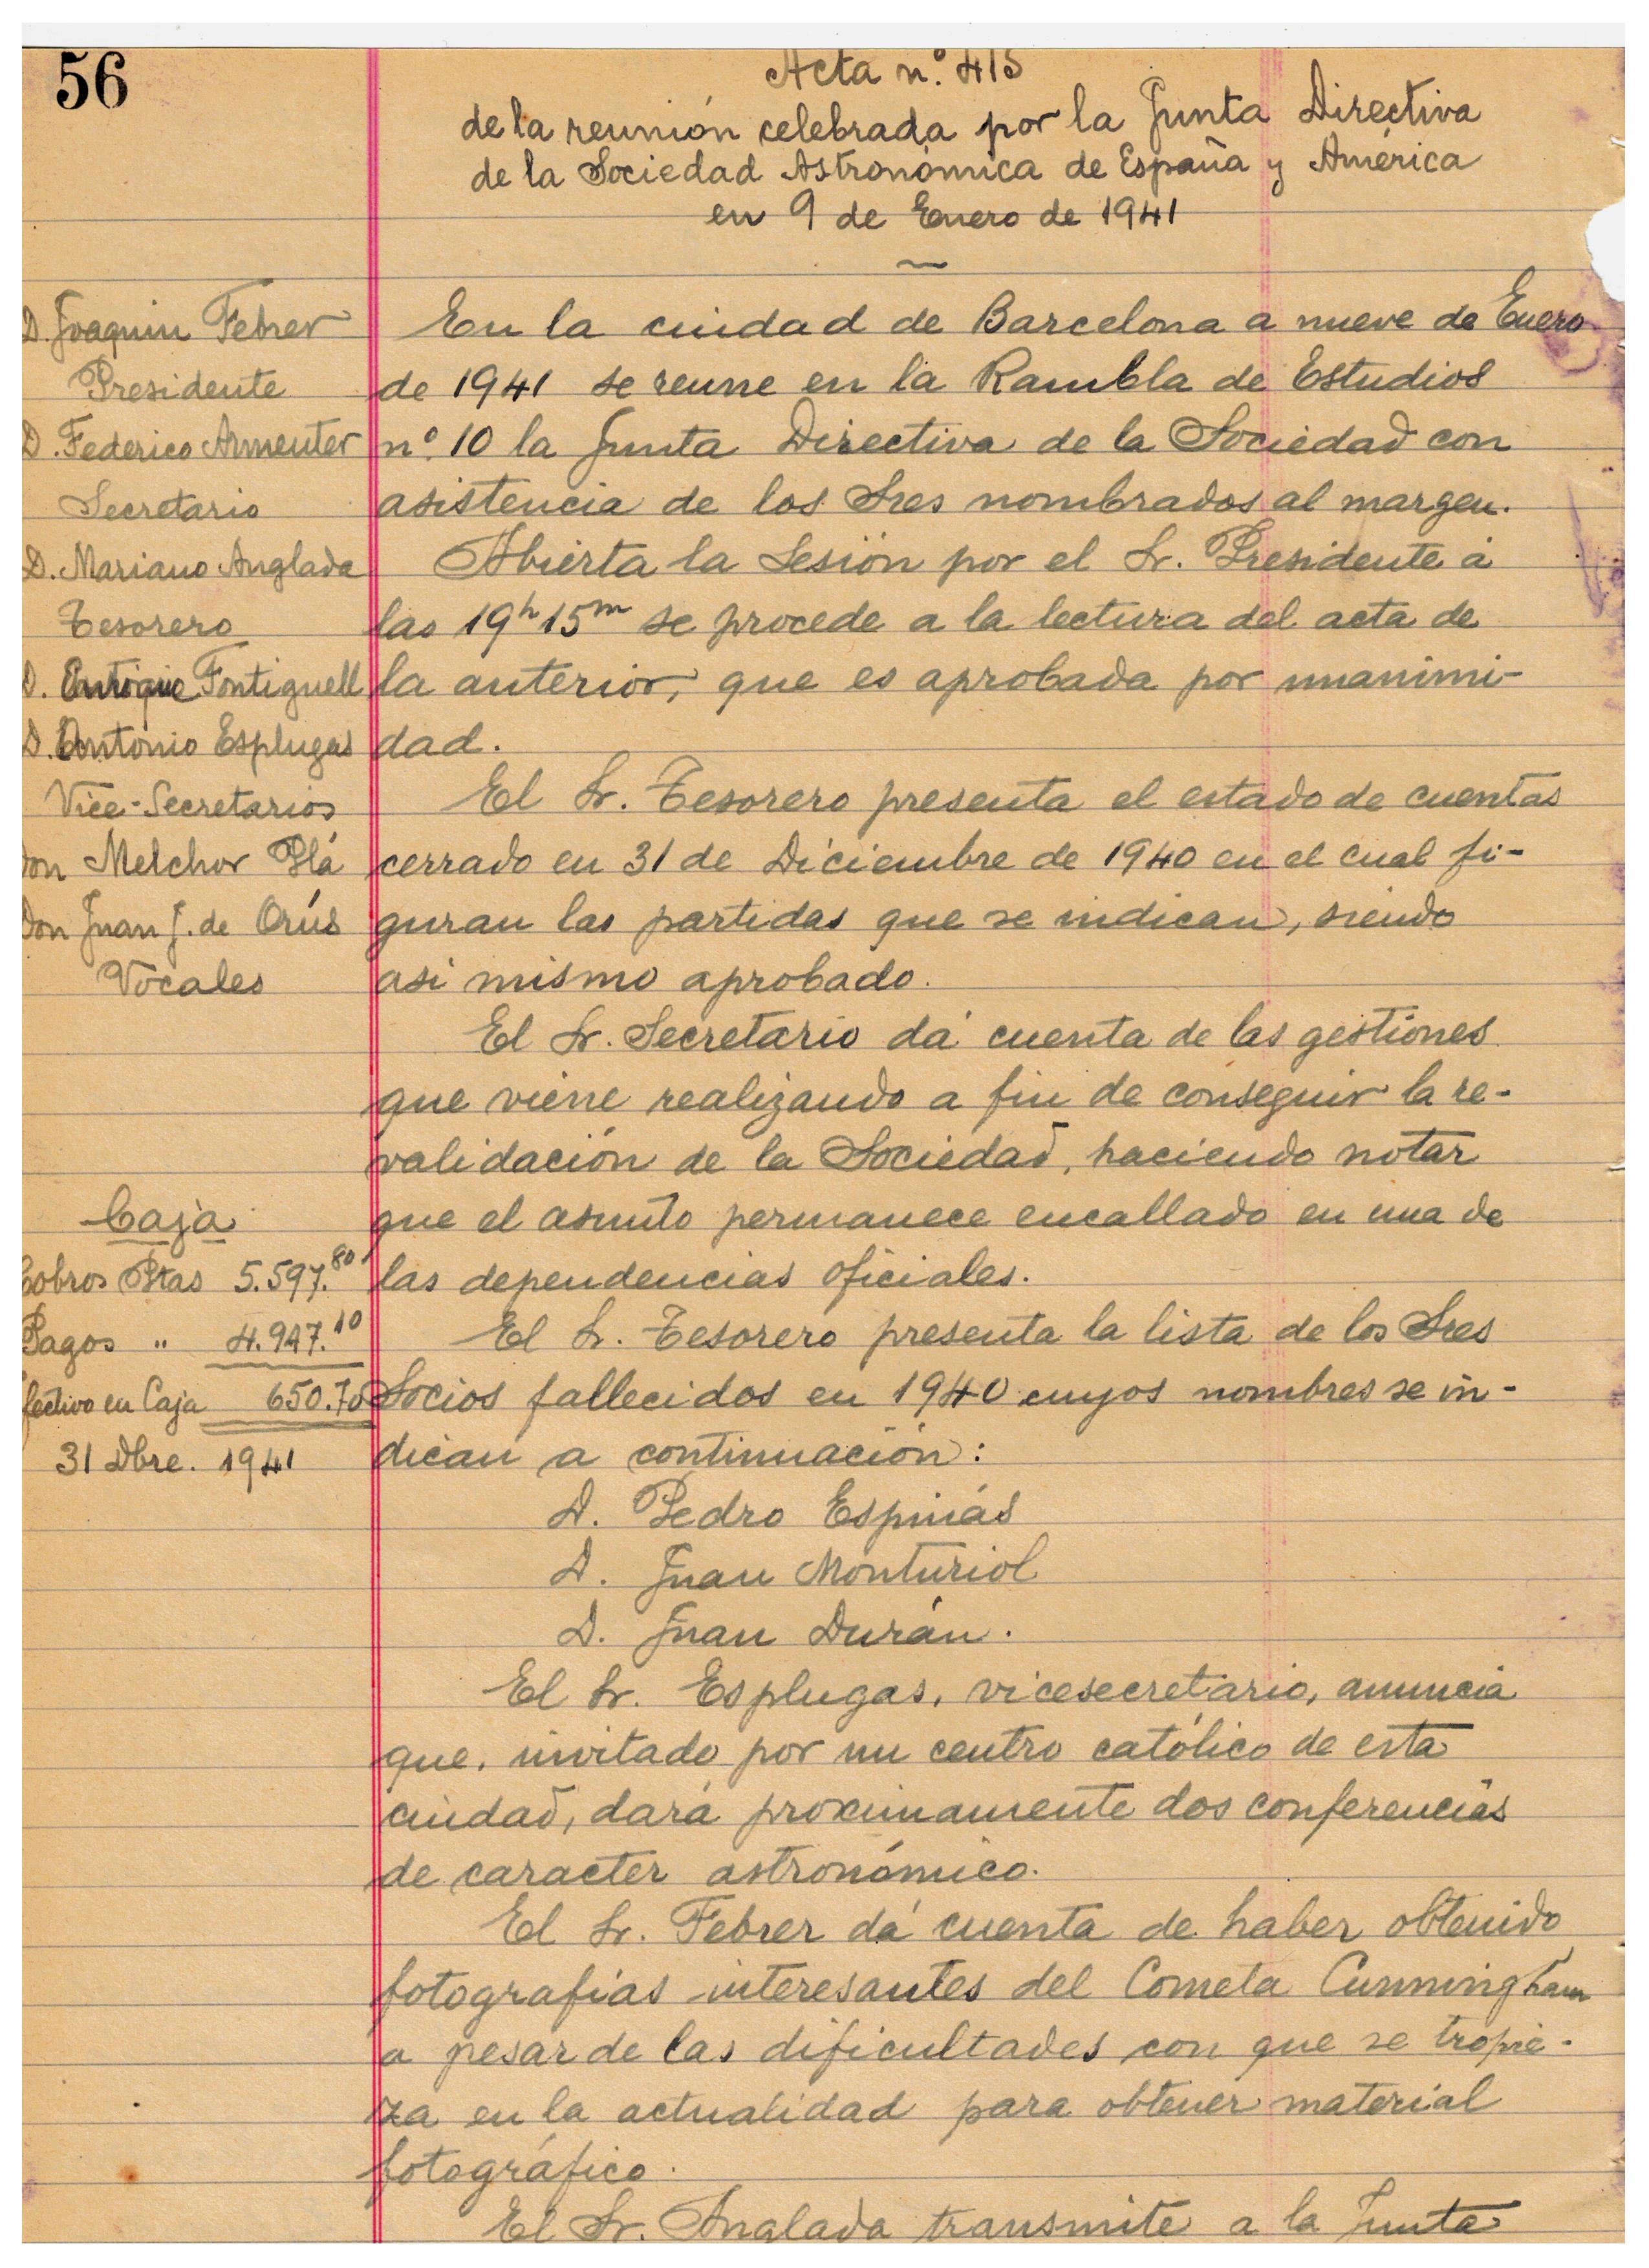 56
Acta n.º 415
de la reunión celebrada por la Junta Directiva
de la Sociedad Astronómica de España y América
en 9 de Enero de 1941
D. Joaquin Febrer
Presidente
D. Federico Armenter
Secretario
D. Mariano Anglada
Tesorero
D. Enrique Fontiguell
D. Antonio Esplugas
Vice-Secretarios
Don Melchor Plá
Don Juan J. de Orús
Vocales
En la ciudad de Barcelona a nueve de Enero
de 1941 se reune en la Rambla de Estudios
nº 10 la Junta Directiva de la Sociedad con
asistencia de los Sres nombrados al margen.
Abierta la Sesión por el Sr. Presidente á
las 19h 15m se procede a la lectura del acta de
la anterior, que es aprobada por unanimi-
dad.
El Sr. Tesorero presenta el estado de cuentas
cerrado en 31 de Diciembre de 1940 en el cual fi-
guran las partidas que se indican, siendo
asi mismo aprobado.
El Sr. Secretario dá cuenta de las gestiones
que viene realizando a fin de conseguir la re-
validación de la Sociedad, haciendo notar
que el asunto permanece encallado en una de
las dependencias oficiales.
Caja
Cobros Ptas 5.597.80
Pagos " 4.947.10
fectivo en Caja 650.70
31 Dbre. 1941
El Sr. Tesorero presenta la lista de los Sres
Socios fallecidos en 1940 cuyos nombres se in-
dican a continuación:
D. Pedro Espinás
D. Juan Monturiol
D. Juan Durán.
El Sr. Esplugas, vicesecretario, anuncia
que, invitado por un centro católico de esta
ciudad, dará proximamente dos conferencias
de caracter astronómico.
El Sr. Febrer dá cuenta de haber obtenido
fotografías interesantes del Cometa Cunningham
a pesar de las dificultades con que se tropie-
za en la actualidad para obtener material
fotográfico.
El Sr. Anglada transmite a la Junta